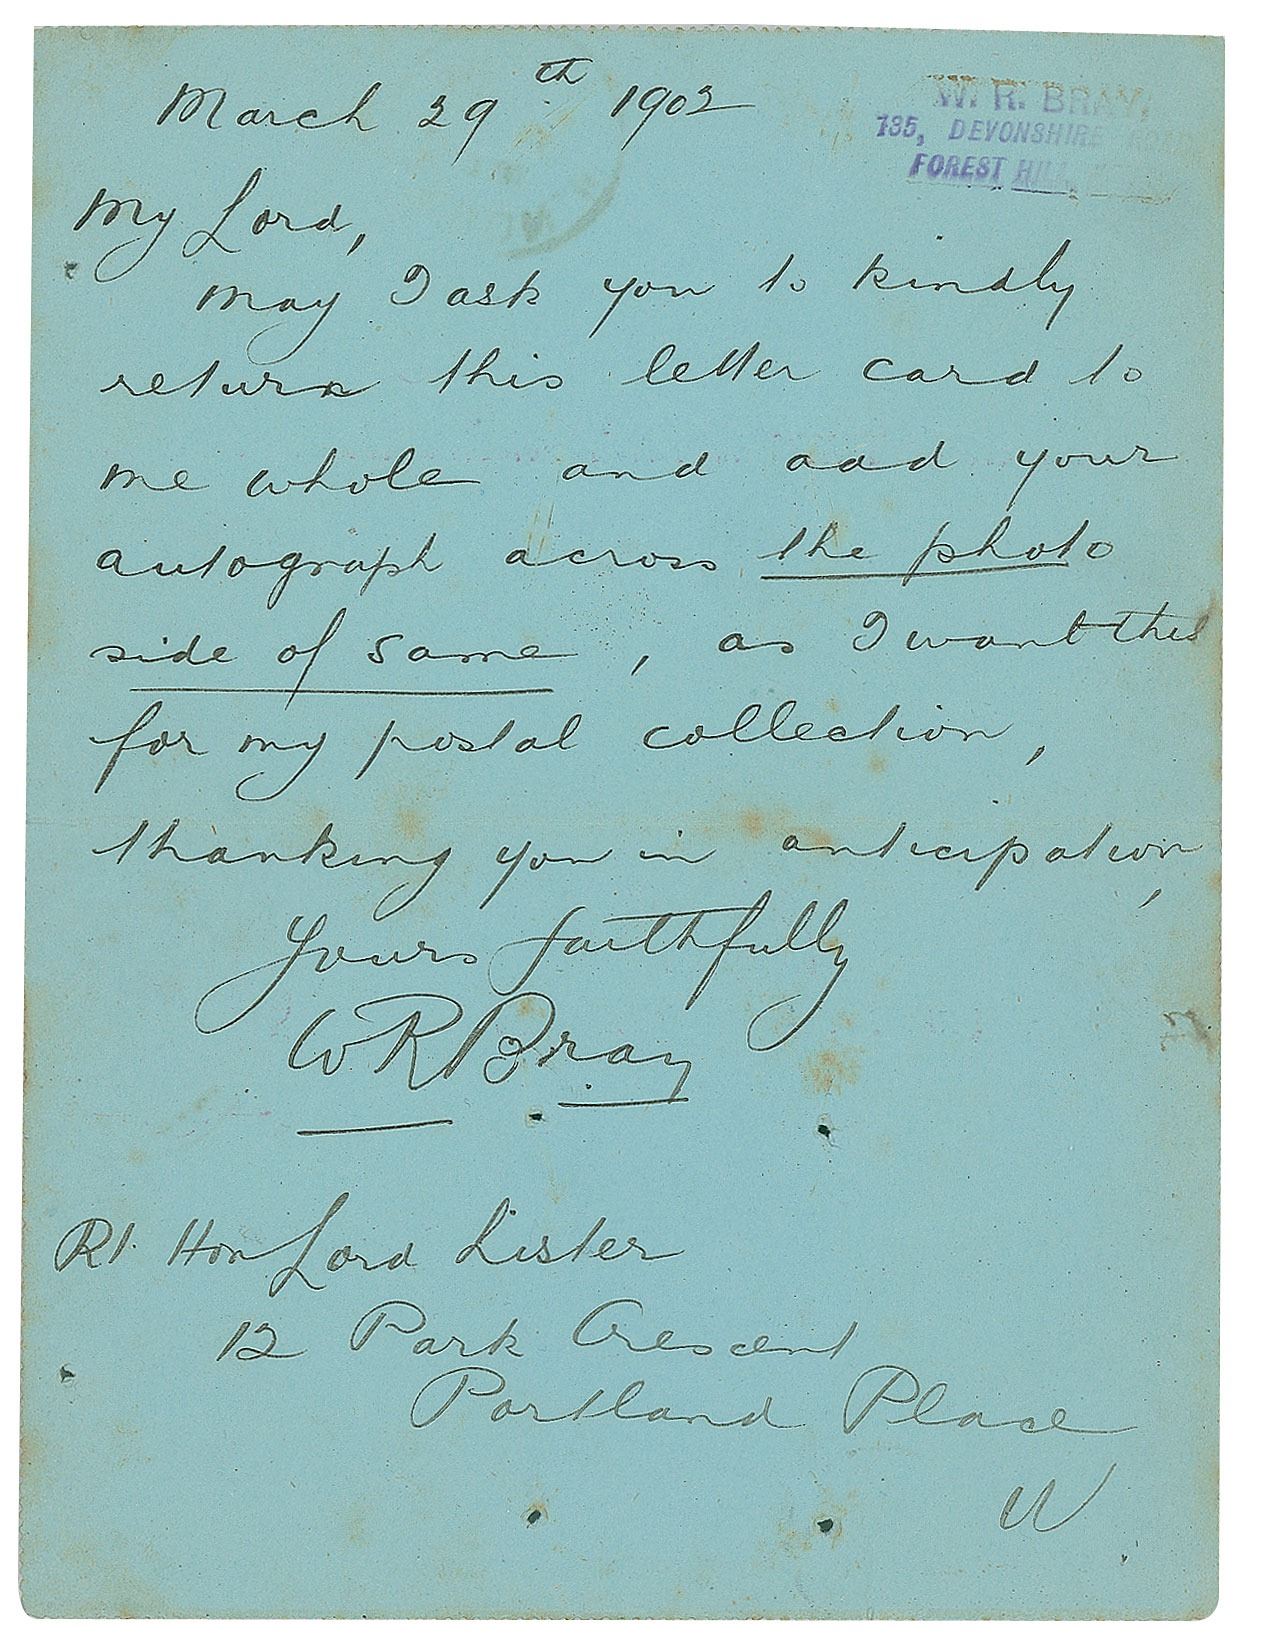 March 29th 1902
W. R. BRAY,
135, DEVONSHIRE ROAD
FOREST HILL,
My Lord,
May I ask you to kindly
return this letter card to
me whole and add your
autograph across the photo
side of same, as I want this
for my postal collection,
thanking you in anticipation,
Yours faithfully
W R Bray
Rt. Hon Lord Lister
12 Park Crescent
Portland Place
W